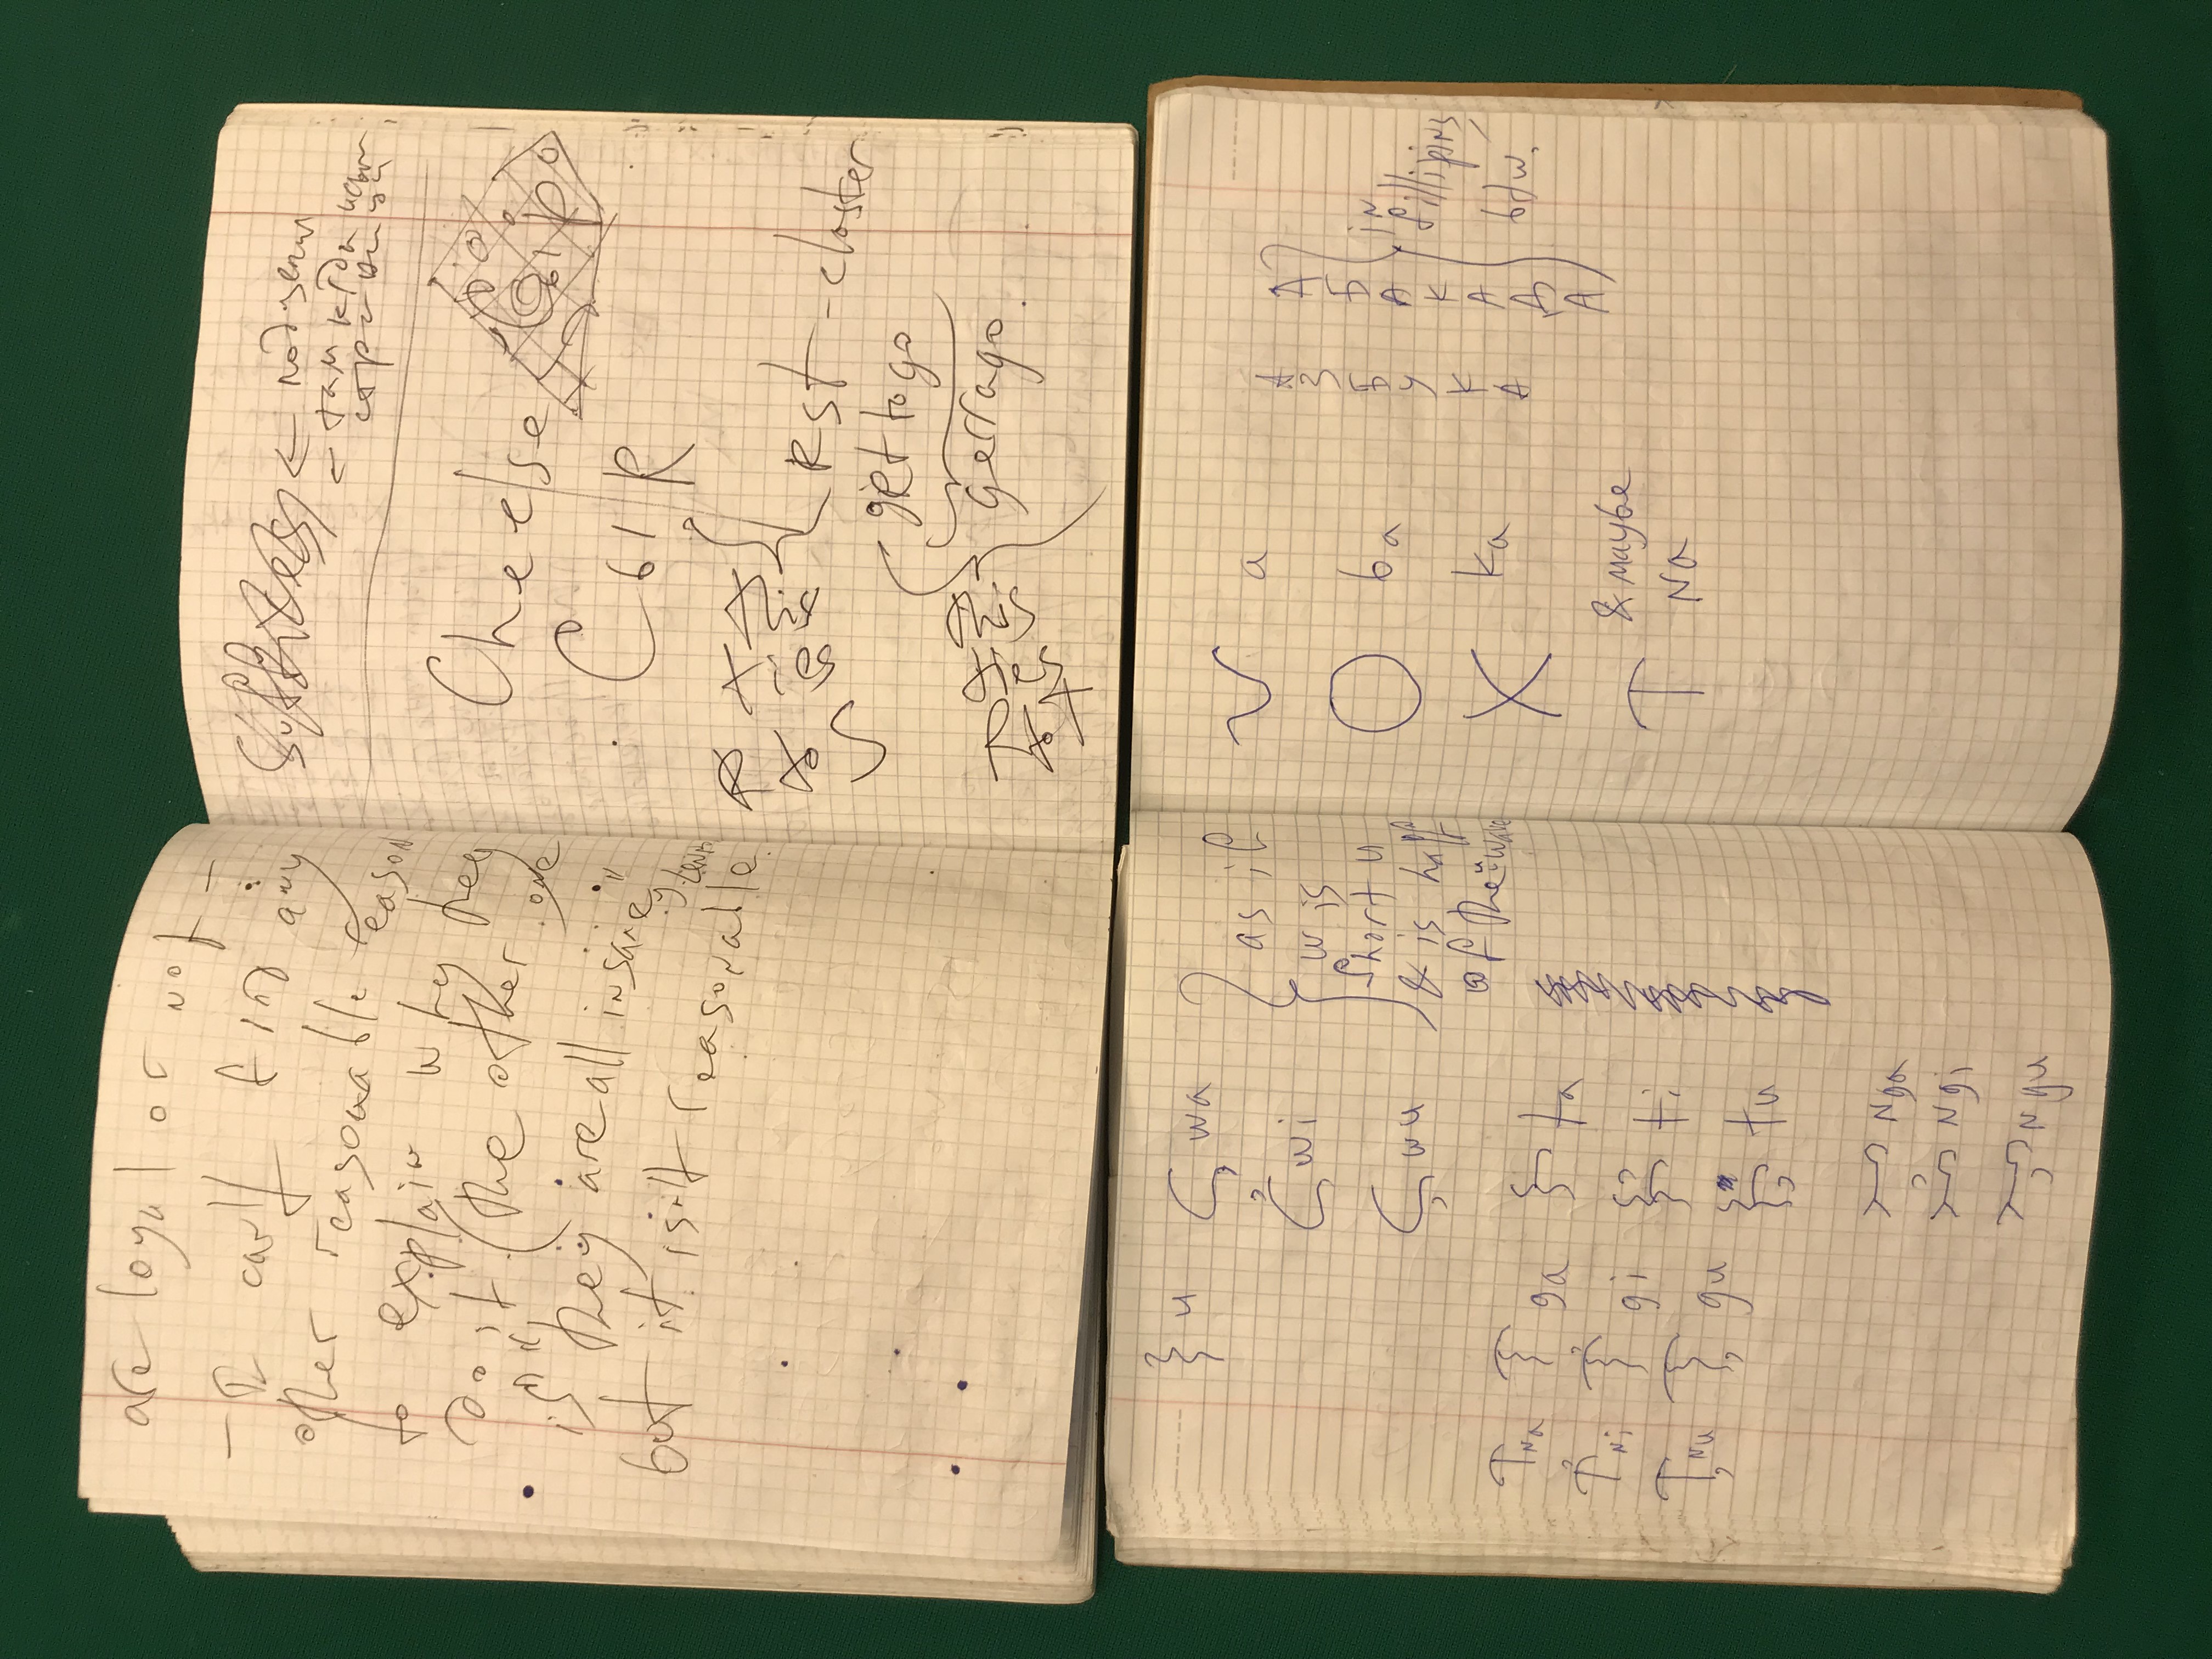 are loyal or not –
– I can't find any
other reasonable reason
to explain why they
do it (the other one
is "they are all insane,"
but it isn't reasonable.
Suffixes ←
← там
Cheese
СЫR
Rst-cluster
get to go
gerrago.
u wa
wi
wu
as if
w is
short u
& is half
of the "wave
Na ga ta
Ni gi ti
Nu gu tu
Nga
Ngi
Ngu
a
ba
ka
& maybe
Na
А
З
Б
У
К
А
А
Б
А
К
А
Д
А
in
fillipins,
btw.